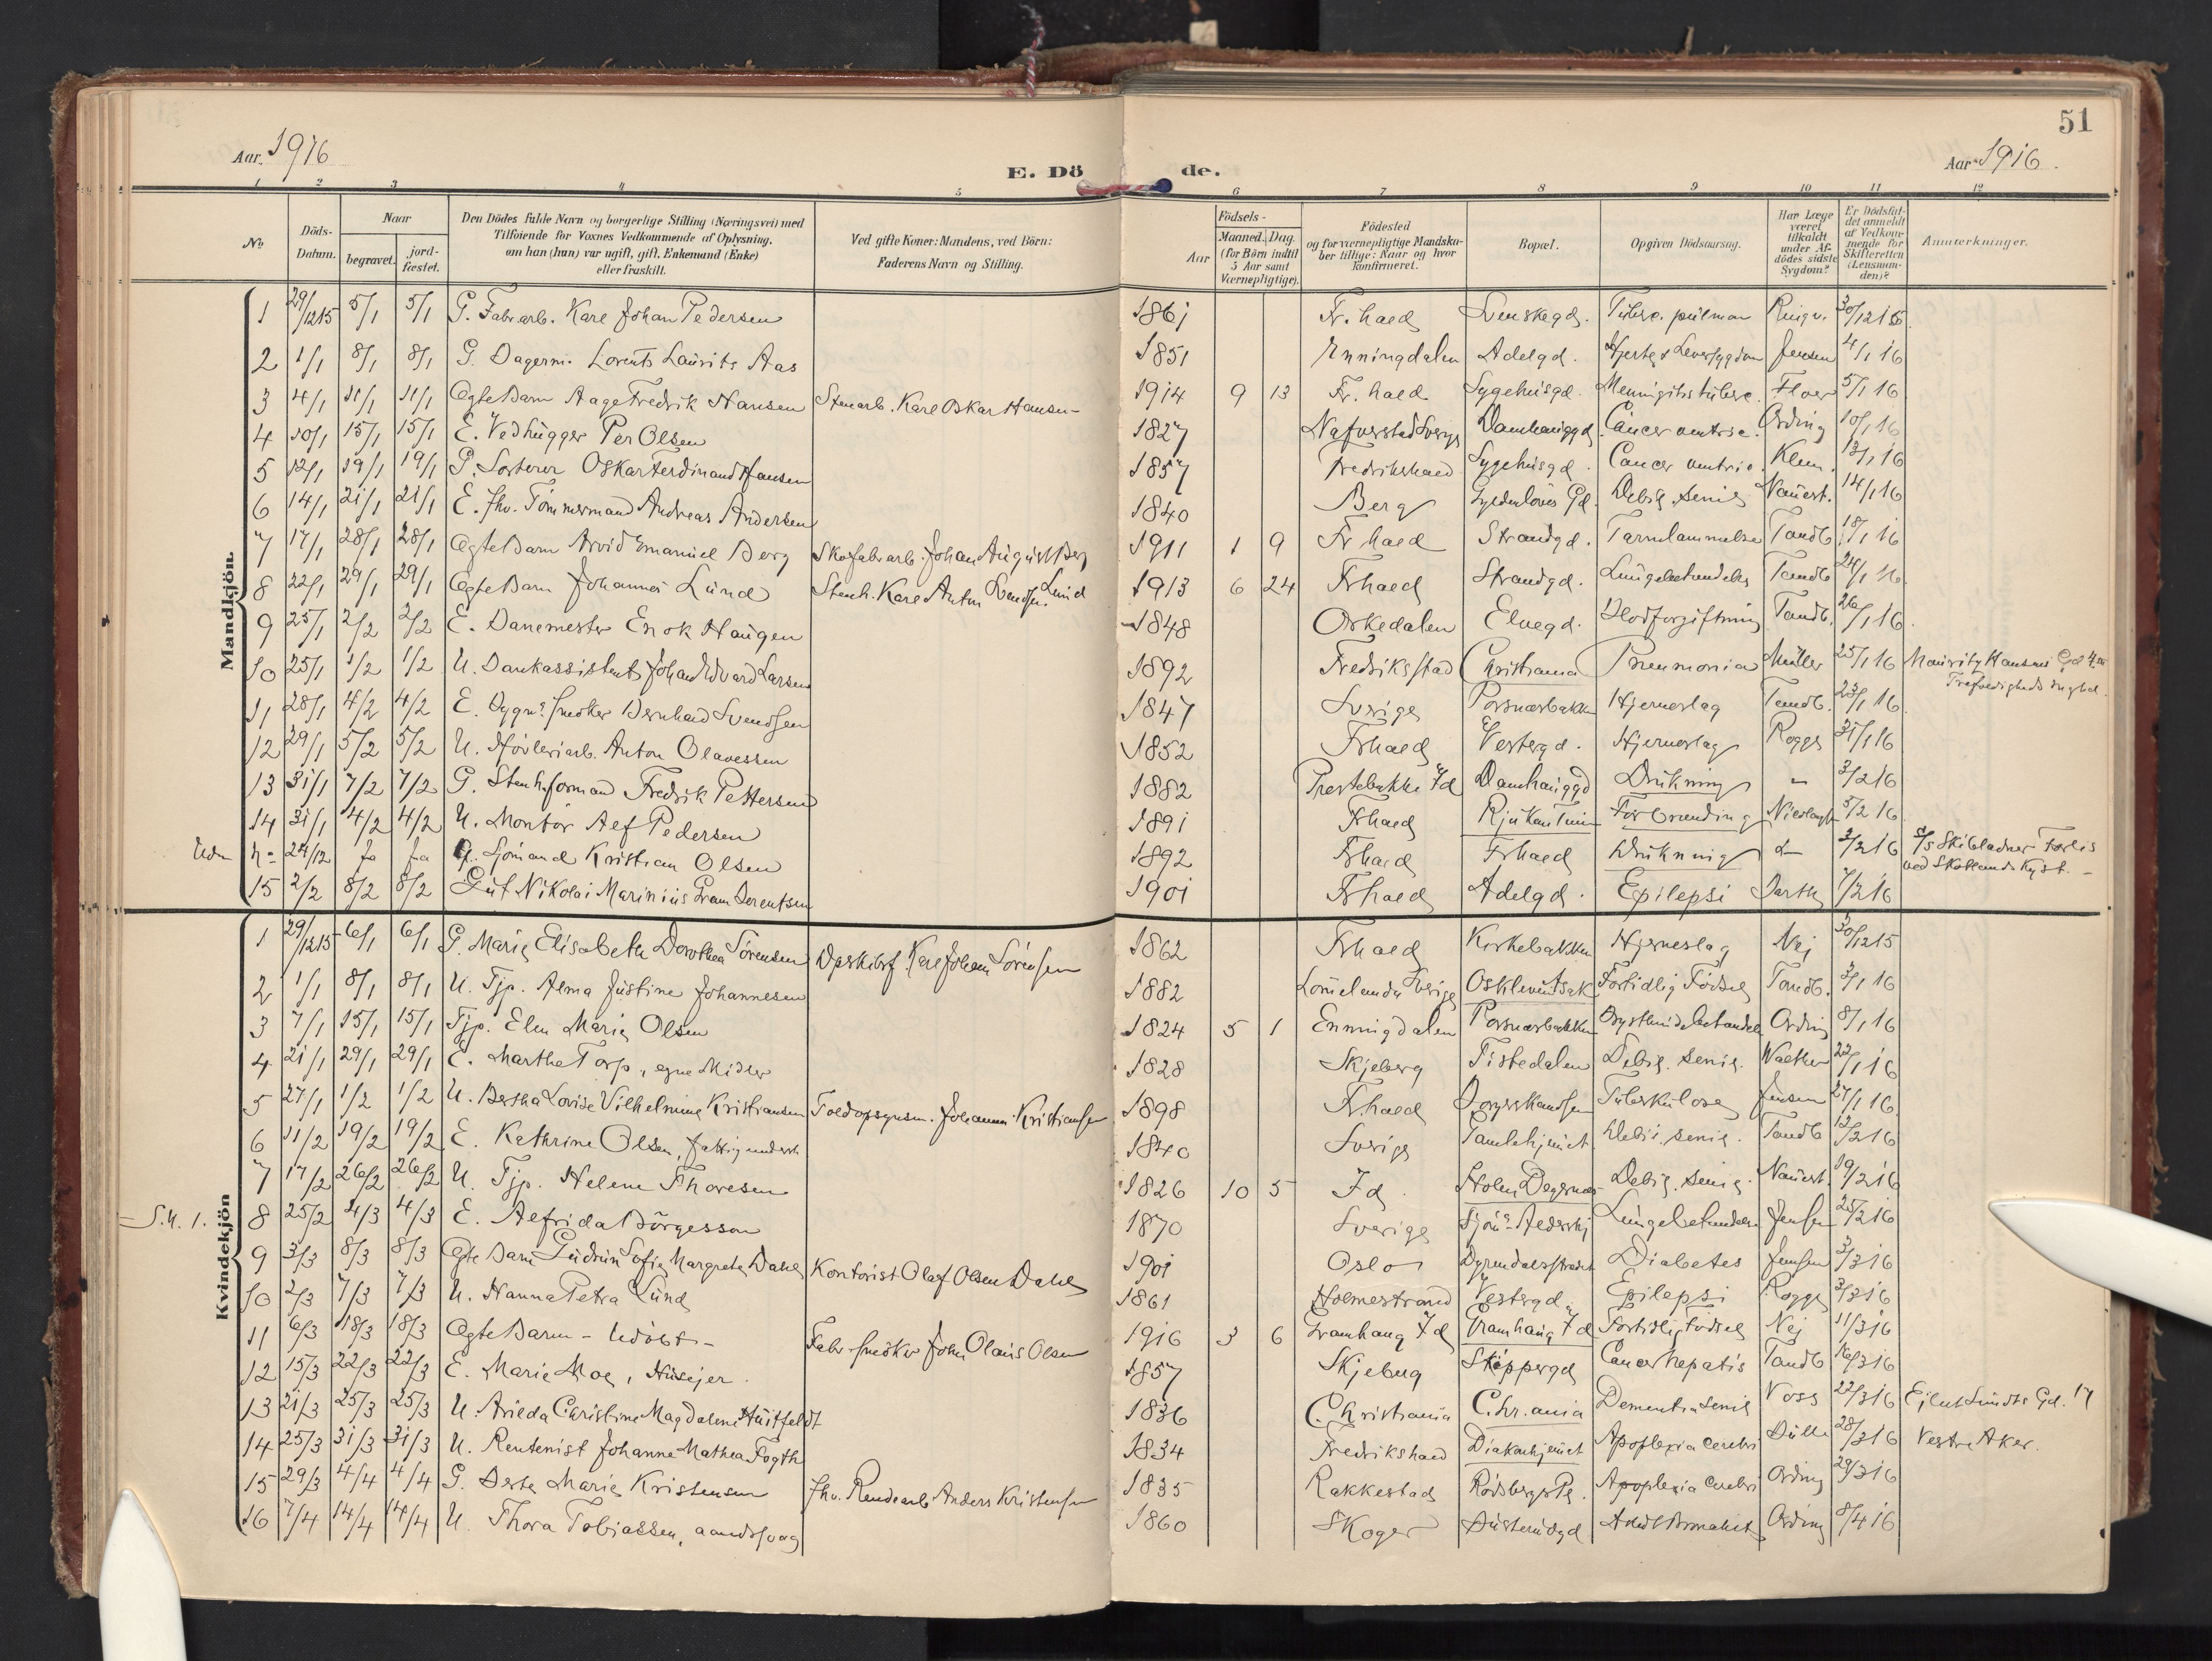 51
Aar 1916
E. Döde.
Aar 1916.
1 2 3 4 5 6 7 8 9 10 11 12
No
Döds-Datum.
Naar
begravet.
jord-fæstet.
Den Dödes fulde Navn og borgerlige Stilling (Næringsvei) med
Tilföiende for Voxnes Vedkommende af Oplysning,
om han (hun) var ugift, gift, Enkemand (Enke)
eller fraskilt.
Ved gifte Koner: Mandens, ved Börn:
Faderens Navn og Stilling.
Födsels-
Aar
Maaned. Dag.
(for Börn indtil
5 Aar samt
Værnepligtige).
Födested
og for værnepligtige Mandska-
ber tillige: Naar og hvor
konfirmeret.
Bopæl.
Opgiven Dödsaarsag.
Har Læge
været
tilkaldt
under Af-
dödes sidste
Sygdom?
Er Dödsfal-
det anmeldt
af Vedkom-
mende for
Skifteretten
(Lensman-
den)?
Anmerkninger.
Mandkjön.
1 29/12 15 5/1 5/1 G. Fabr.arb. Karl Johan Pedersen 1861 Fr.hald Svenskegd. Tuberc. pulmon 30/12 15
2 1/1 8/1 8/1 G. Lorents Laurits Aas 1851 Enningdalen Adelgd. Hjerte & Leversygdom Jensen 4/1 16
3 4/1 11/1 11/1 Ægte Barn Aage Fredrik Hansen Stenarb. Karl Oskar Hansen 1914 9 13 Fr.hald Sygehusgd. Meningitis tuberc. Floer 5/1 16
4 10/1 15/1 15/1 E. Vedhugger Per Olsen 1827 Nafverstad Sverge Damhauggd. Cancer ventric. Ording 10/1 16
5 12/1 19/1 19/1 G. Sorterer Oskar Ferdinand Hansen 1857 Fredrikshald Sygehusgd. Cancer ventric. Klem. 13/1 16
6 14/1 21/1 21/1 E. Fhv. Tömmermand Andreas Andersen 1840 Berg Gyldenlöves Gd. Debil. senil Nauert. 14/1 16
7 17/1 28/1 28/1 Ægte Barn Arvid Emanuel Berg Skofabr.arb. Johan August Berg 1911 1 9 Fr hald Strandgd. Tarmlammelse Tandb. 18/1 16
8 22/1 29/1 29/1 Ægte Barn Johannes Lund Stenh. Karl Anton Svendsen Lund 1913 6 24 Frhald Strandgd. Lungebetendelse Tandb 24/1 16
9 25/1 2/2 2/2 E. Banemester Enok Haugen 1848 Orkedalen Elvegd. Blodforgiftning Tandb. 26/1 16
10 25/1 1/2 1/2 U. Bankassistent Johan Edvard Larsen 1892 Fredriksstad Christiania Pneumonia Müller 25/1 16 Mauritz Hansens Gd 4
11 28/1 4/2 4/2 E. Bygn.s snedker Bernhard Svendsen 1847 Sverige Porsnæsbakken Hjerneslag Tandb. 16
12 29/1 5/2 5/2 U. Høvleriarb. Anton Olavessen 1852 Frhald Vestergd. Hjerneslag Rogge 31/1 16
13 31/1 7/2 7/2 G. Stenh.formand Fredrik Pettersen 1882 Prestebakke Id Damhauggd Drukning - 3/2 16
14 31/1 4/2 4/2 U. Montör Alf Pedersen 1891 Frhald Rjukan Tinn Forbrænding 5/2 16
24/12 Sjömand Kristian Olsen 1892 Frhald Frhald Drukning 2/2 16 S/S Skibladner Forlis
ved Skotlands Kyst. -
15 2/2 8/2 8/2 Gut Nikolai Marinius Gram Berentsen 1901 Frhald Adelgd. Epilepsi Barth 7/2 16
Kvindekjön
1 29/12 15 6/1 6/1 G. Marie Elisabeth Dorothea Sörensen Karl Johan Sörensen 1862 Frhald Kirkebakken Hjerneslag Nej 30/12 15
2 1/1 8/1 8/1 U. Tjp. Alma Justine Johannesen 1882 Sverige Fortidlig Fødsel Tandb. 3/1 16
3 7/1 15/1 15/1 Tjp. Elen Marie Olsen 1824 5 1 Enningdalen Porsnæsbakken Ording 8/1 16
4 21/1 29/1 29/1 E. Marthe Torp, egne Midler 1828 Skjeberg Tistedalen Debil. senil. Walther 22/1 16
5 27/1 1/2 1/2 U. Bertha Lovise Vilhelmine Kristiansen Toldopsynsm. Johannes Kristiansen 1898 Fr.hald Tuberkulose Jensen 27/1 16
6 11/2 19/2 19/2 E. Kathrine Olsen, fattigunderst. 1840 Sverige Gamlehjemet Debil. senil. Tandb 12/2 16
7 17/2 26/2 26/2 U. Tjp. Helene Thoresen 1826 10 5 Id. Holm Degernæs Debil. senil. Nauert. 19/2 16
8 25/2 4/3 4/3 E. Alfrida Børgesson 1870 Sverige Lungebetendelse Jensen 25/2 16
9 3/3 8/3 8/3 Ægte Barn Gudrun Sofie Margrete Dahl Kontorist Olaf Olsen Dahl 1901 Oslo Dyrendalsstrædet Diabetes Jensen 3/3 16
10 2/3 7/3 7/3 U. Hanna Petra Lund 1861 Holmestrand Vestergd. Epilepsi Rogge 3/3 16
11 6/3 18/3 18/3 Ægte Barn - Udöbt - Fabr. snedker John Olaus Olsen 1916 3 6 Gramhaug Id Gramhaug Id Fortidlig Fødsel Nej 11/3 16
12 15/3 22/3 22/3 E. Marie Moe, Husejer. 1857 Skjeberg Skippergd Cancer hepatis Tandb 16/3 16
13 21/3 25/3 25/3 U. Arilda Christine Magdalene Huitfeldt 1836 Christiania Chr.ania Dementia senil Voss 22/3 16 Eilert Sundts Gd. 17
14 25/3 31/3 31/3 U. Rentenist Johanne Mathea Fogth 1834 Fredrikshald Diakonhjemmet Apoplexia cerebri 28/3 16 Vestre Aker.
15 29/3 4/4 4/4 G. Berte Marie Kristensen Fhv. Anders Kristensen 1835 Rakkestad Rödsberg Apoplexia cerebri Ording 29/3 16
16 7/4 14/4 14/4 U. Thora Tobiassen, aandssvag 1860 Skoger Busterudgd Ording 8/4 16